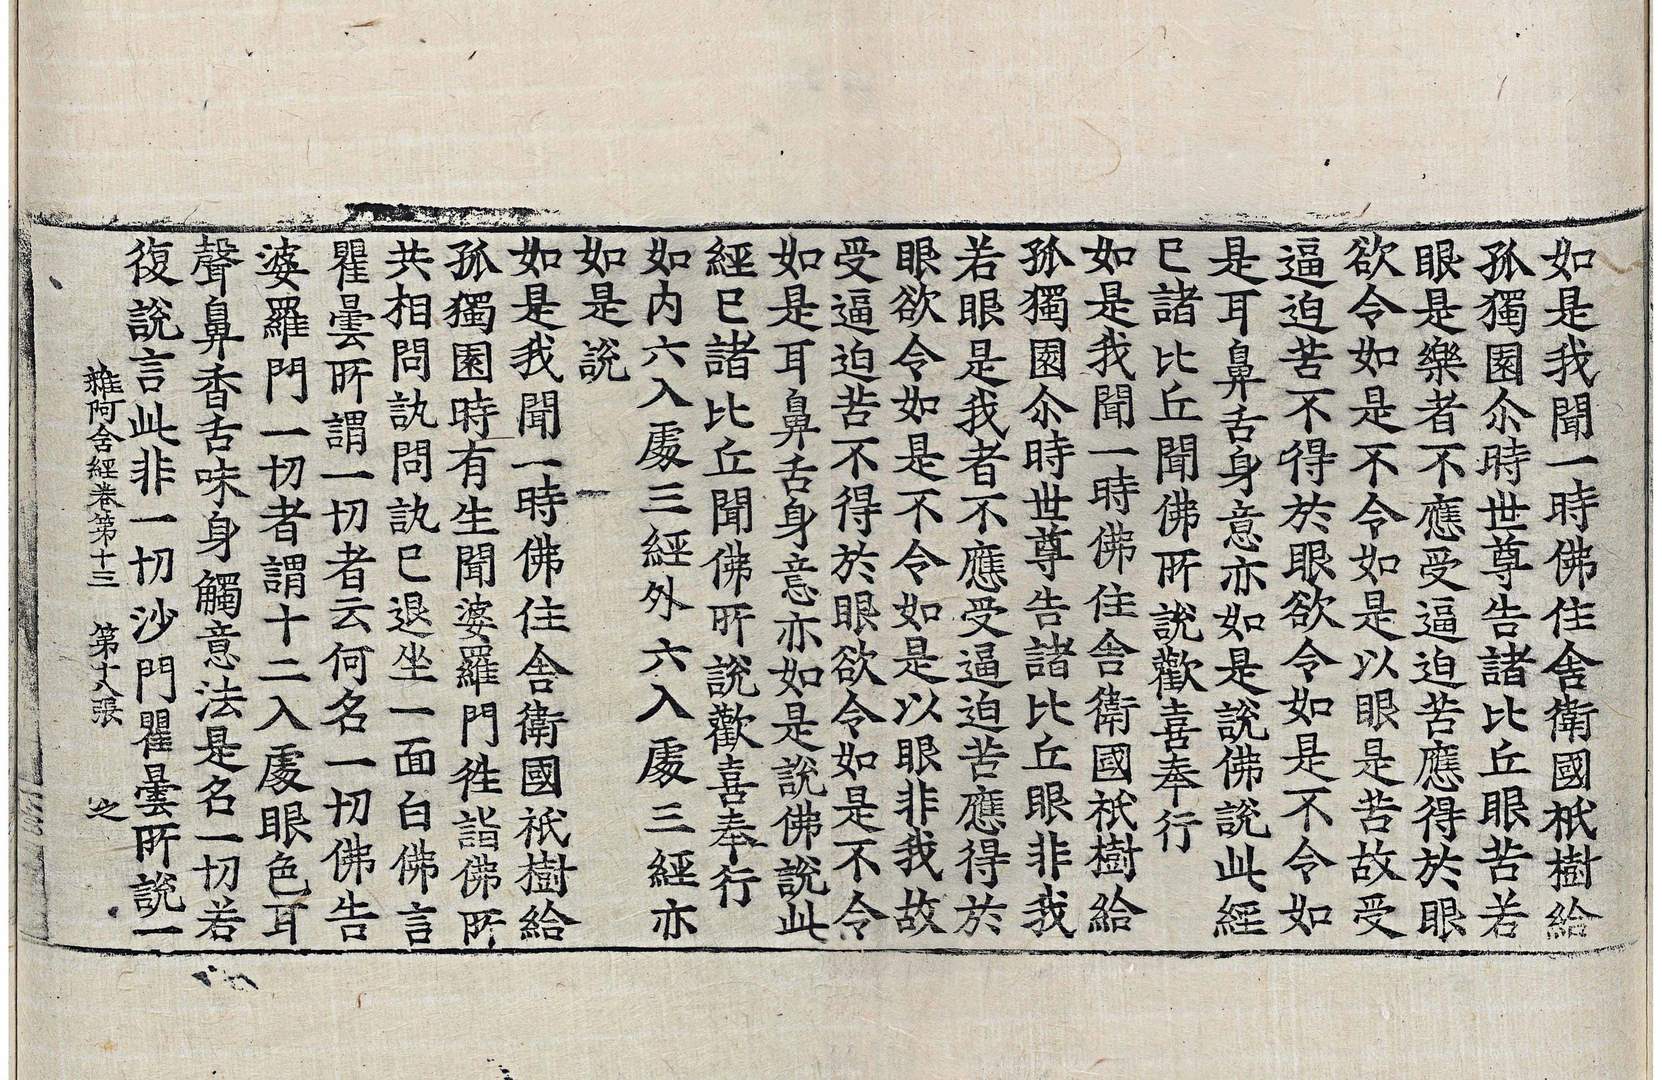 如是我聞一時佛住舍衛國祇樹給
孤獨園尒時世尊告諸比丘眼苦若
眼是樂者不應受逼迫苦應得於眼
欲令如是不令如是以眼是苦故受
逼迫苦不得於眼欲令如是不令如
是耳鼻舌身意亦如是說佛說此經
已諸比丘聞佛所說歡喜奉行
如是我聞一時佛住舍衛國祇樹給
孤獨園尒時世尊告諸比丘眼非我
若眼是我者不應受逼迫苦應得於
眼欲令如是不令如是以眼非我故
受逼迫苦不得於眼欲令如是不令
如是耳鼻舌身意亦如是說佛說此
經已諸比丘聞佛所說歡喜奉行
如內六入處三經外六入處三經亦
如是說
如是我聞一時佛住舍衛國祇樹給
孤獨園時有生聞婆羅門往詣佛所
共相問訊問訊已退坐一面白佛言
瞿曇所謂一切者云何名一切佛告
婆羅門一切者謂十二入處眼色耳
聲鼻香舌味身觸意法是名一切若
復說言此非一切沙門瞿曇所說一
雜阿含經卷第十三 第十八張 之